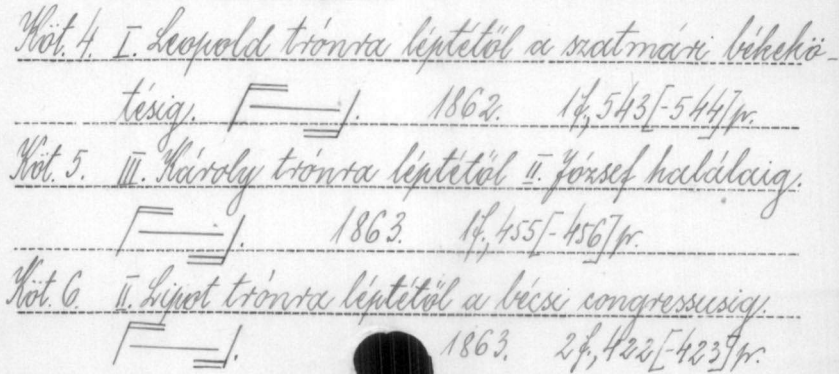 Köt. 4. I. Leopold trónra léptétől a szatmári békekö-
tésig. [—]. 1862. 1f., 543[-544]p.
Köt. 5. III. Károly trónra léptétől II. József haláláig.
[—]. 1863. 1f., 455[-456]p.
Köt. 6. II. Lipot trónra léptétől a bécsi congressusig.
[—]. 1863. 2f., 422[-423]p.